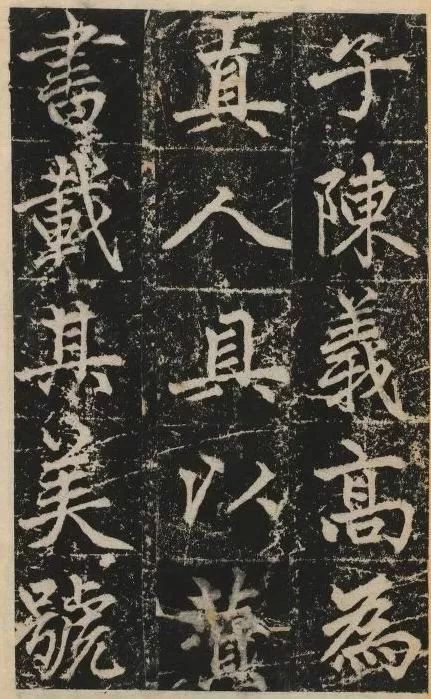 子陳義高為
真人具以
書載其美號